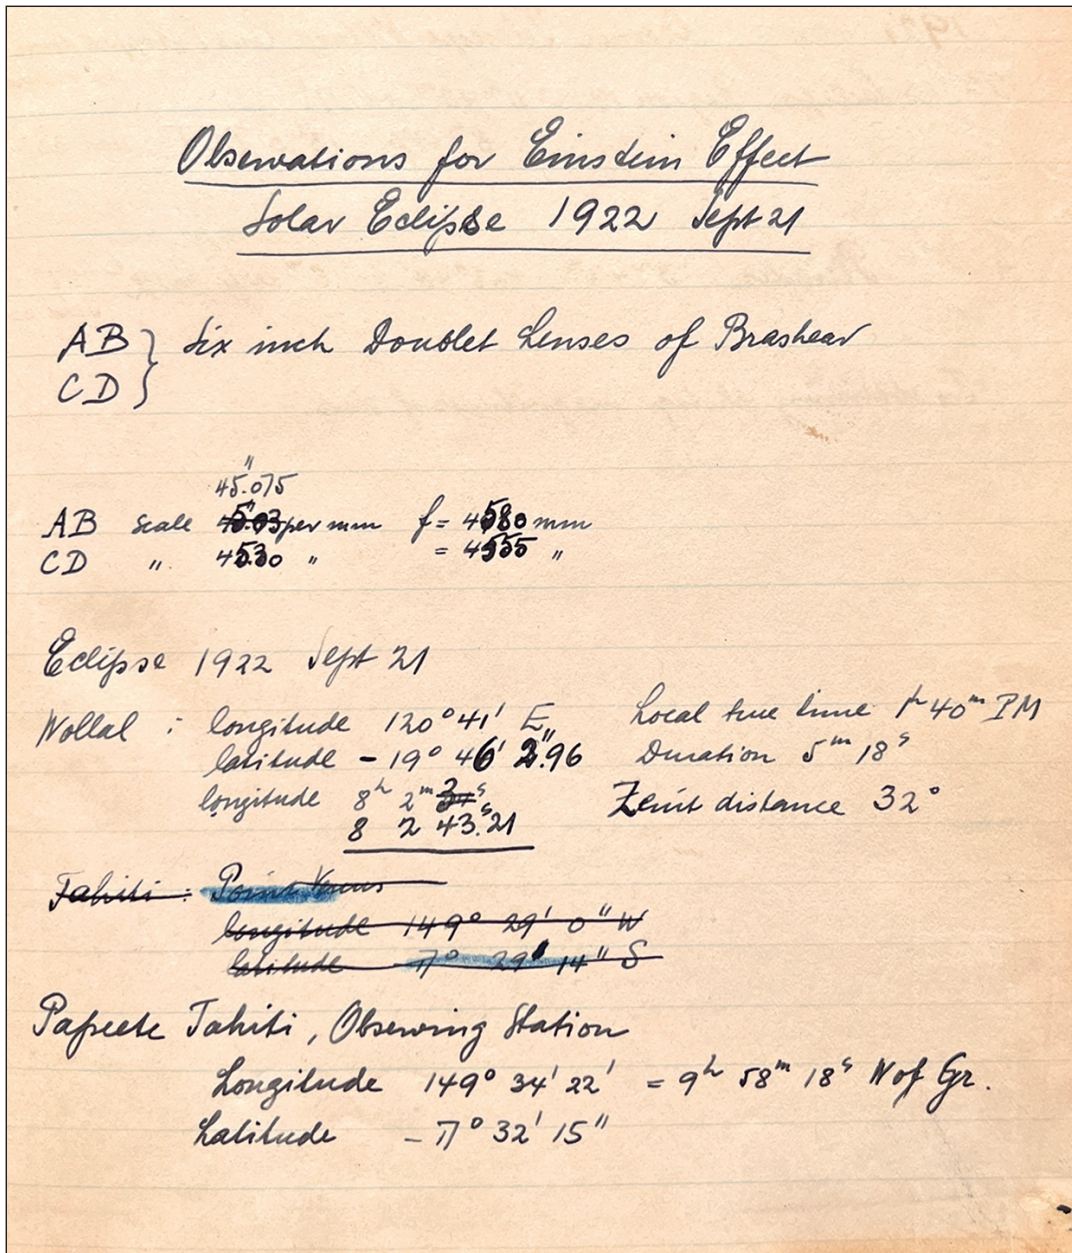 Observations for Einstein Effect
Solar Eclipse 1922 Sept 21
AB } Six inch Doublet Lenses of Brashear
CD }
45".075
AB scale 45".03 per mm f = 4580 mm
CD " 45.30 " = 4555 "
Eclipse 1922 Sept 21
Wollal : longitude 120° 41' E, Local true time 1h 40m PM
latitude - 19° 46' 2".96 Duration 5m 18s
longitude 8h 2m Zenit distance 32°
8 2 43.s21
Tahiti : Point Venus
longitude 149° 29' 0" W
latitude 17° 29' 14" S
Papeete Tahiti, Observing Station
Longitude 149° 34' 22' = 9h 58m 18s W of Gr.
Latitude - 17° 32' 15"